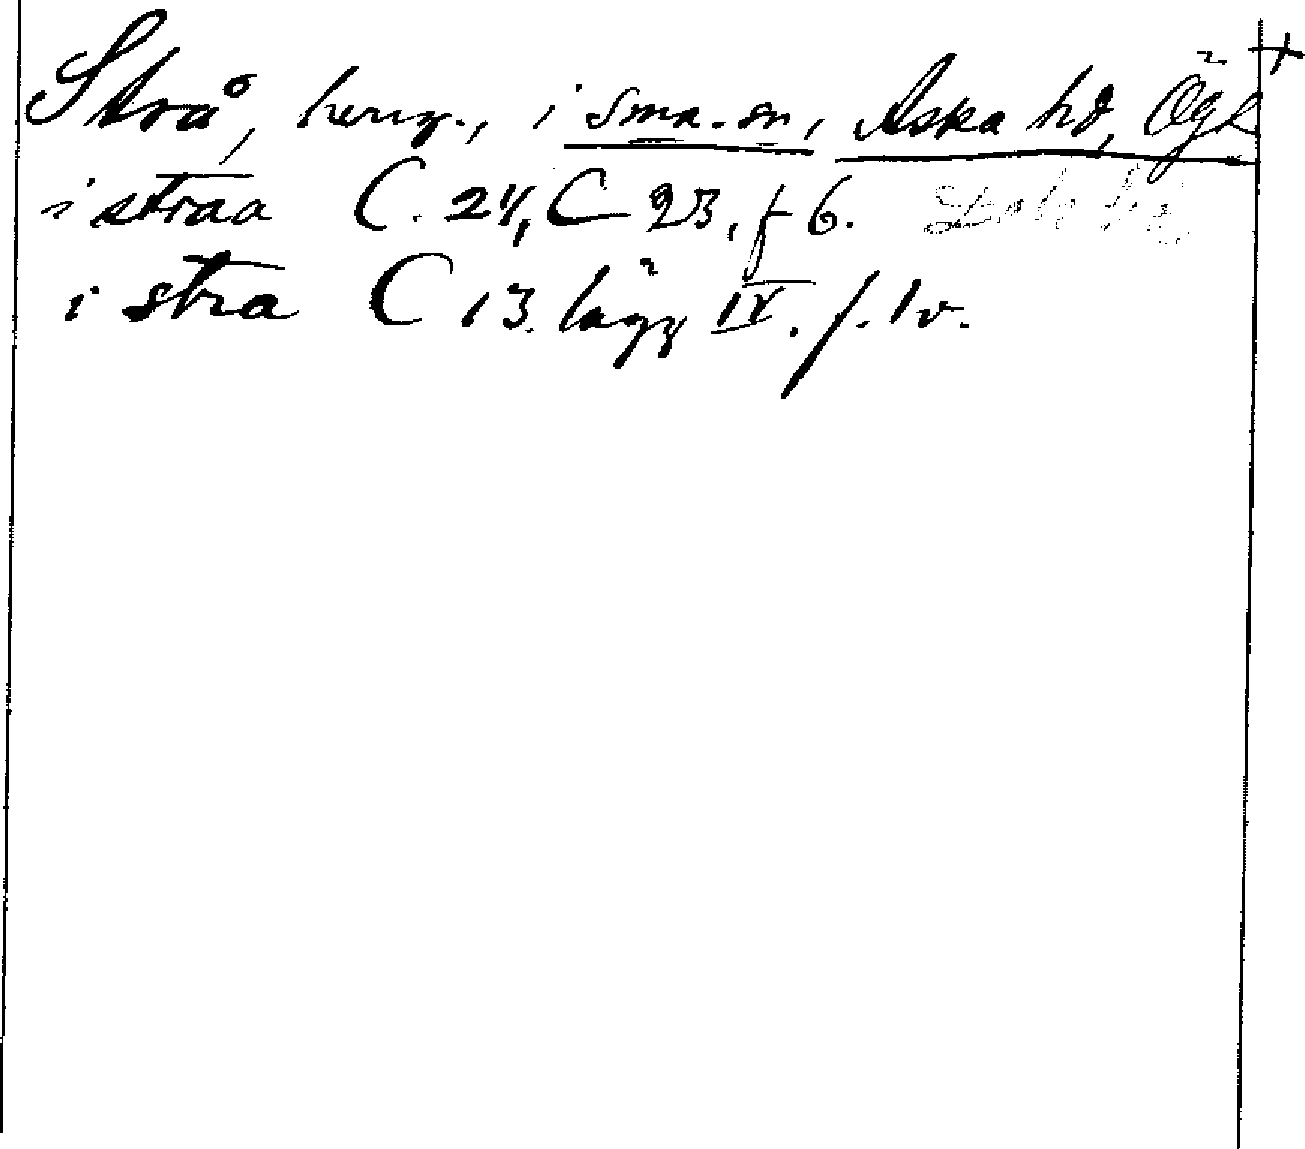 Strå, hemg., i Sma. sn, Aska hd, Ögl +
i straa C. 24, C 23, f 6.
i stra C 13. lägg IV. f. 1v.